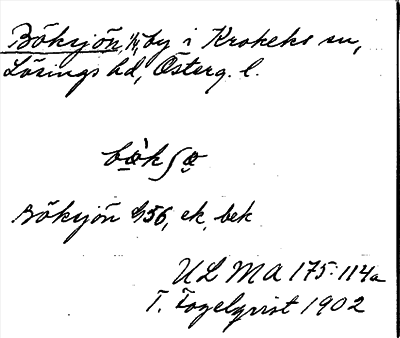 Böksjön, 1/1, by i Krokeks sn,
Lösings hd, Österg. l.
bœ̀kʃœ
Böksjön G56, ek, bek
ULMA 175:114a
T. Fogelqvist 1902